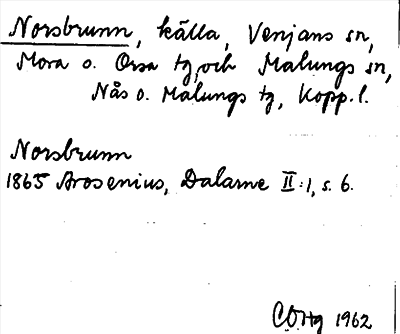 Norsbrunn, källa, Venjans sn,
Mora o. Orsa tg, och Malungs sn,
Nås o. Malungs tg, Kopp. l.
Norsbrunn
1865 Arosenius, Dalarne II:1, s. 6.
1962